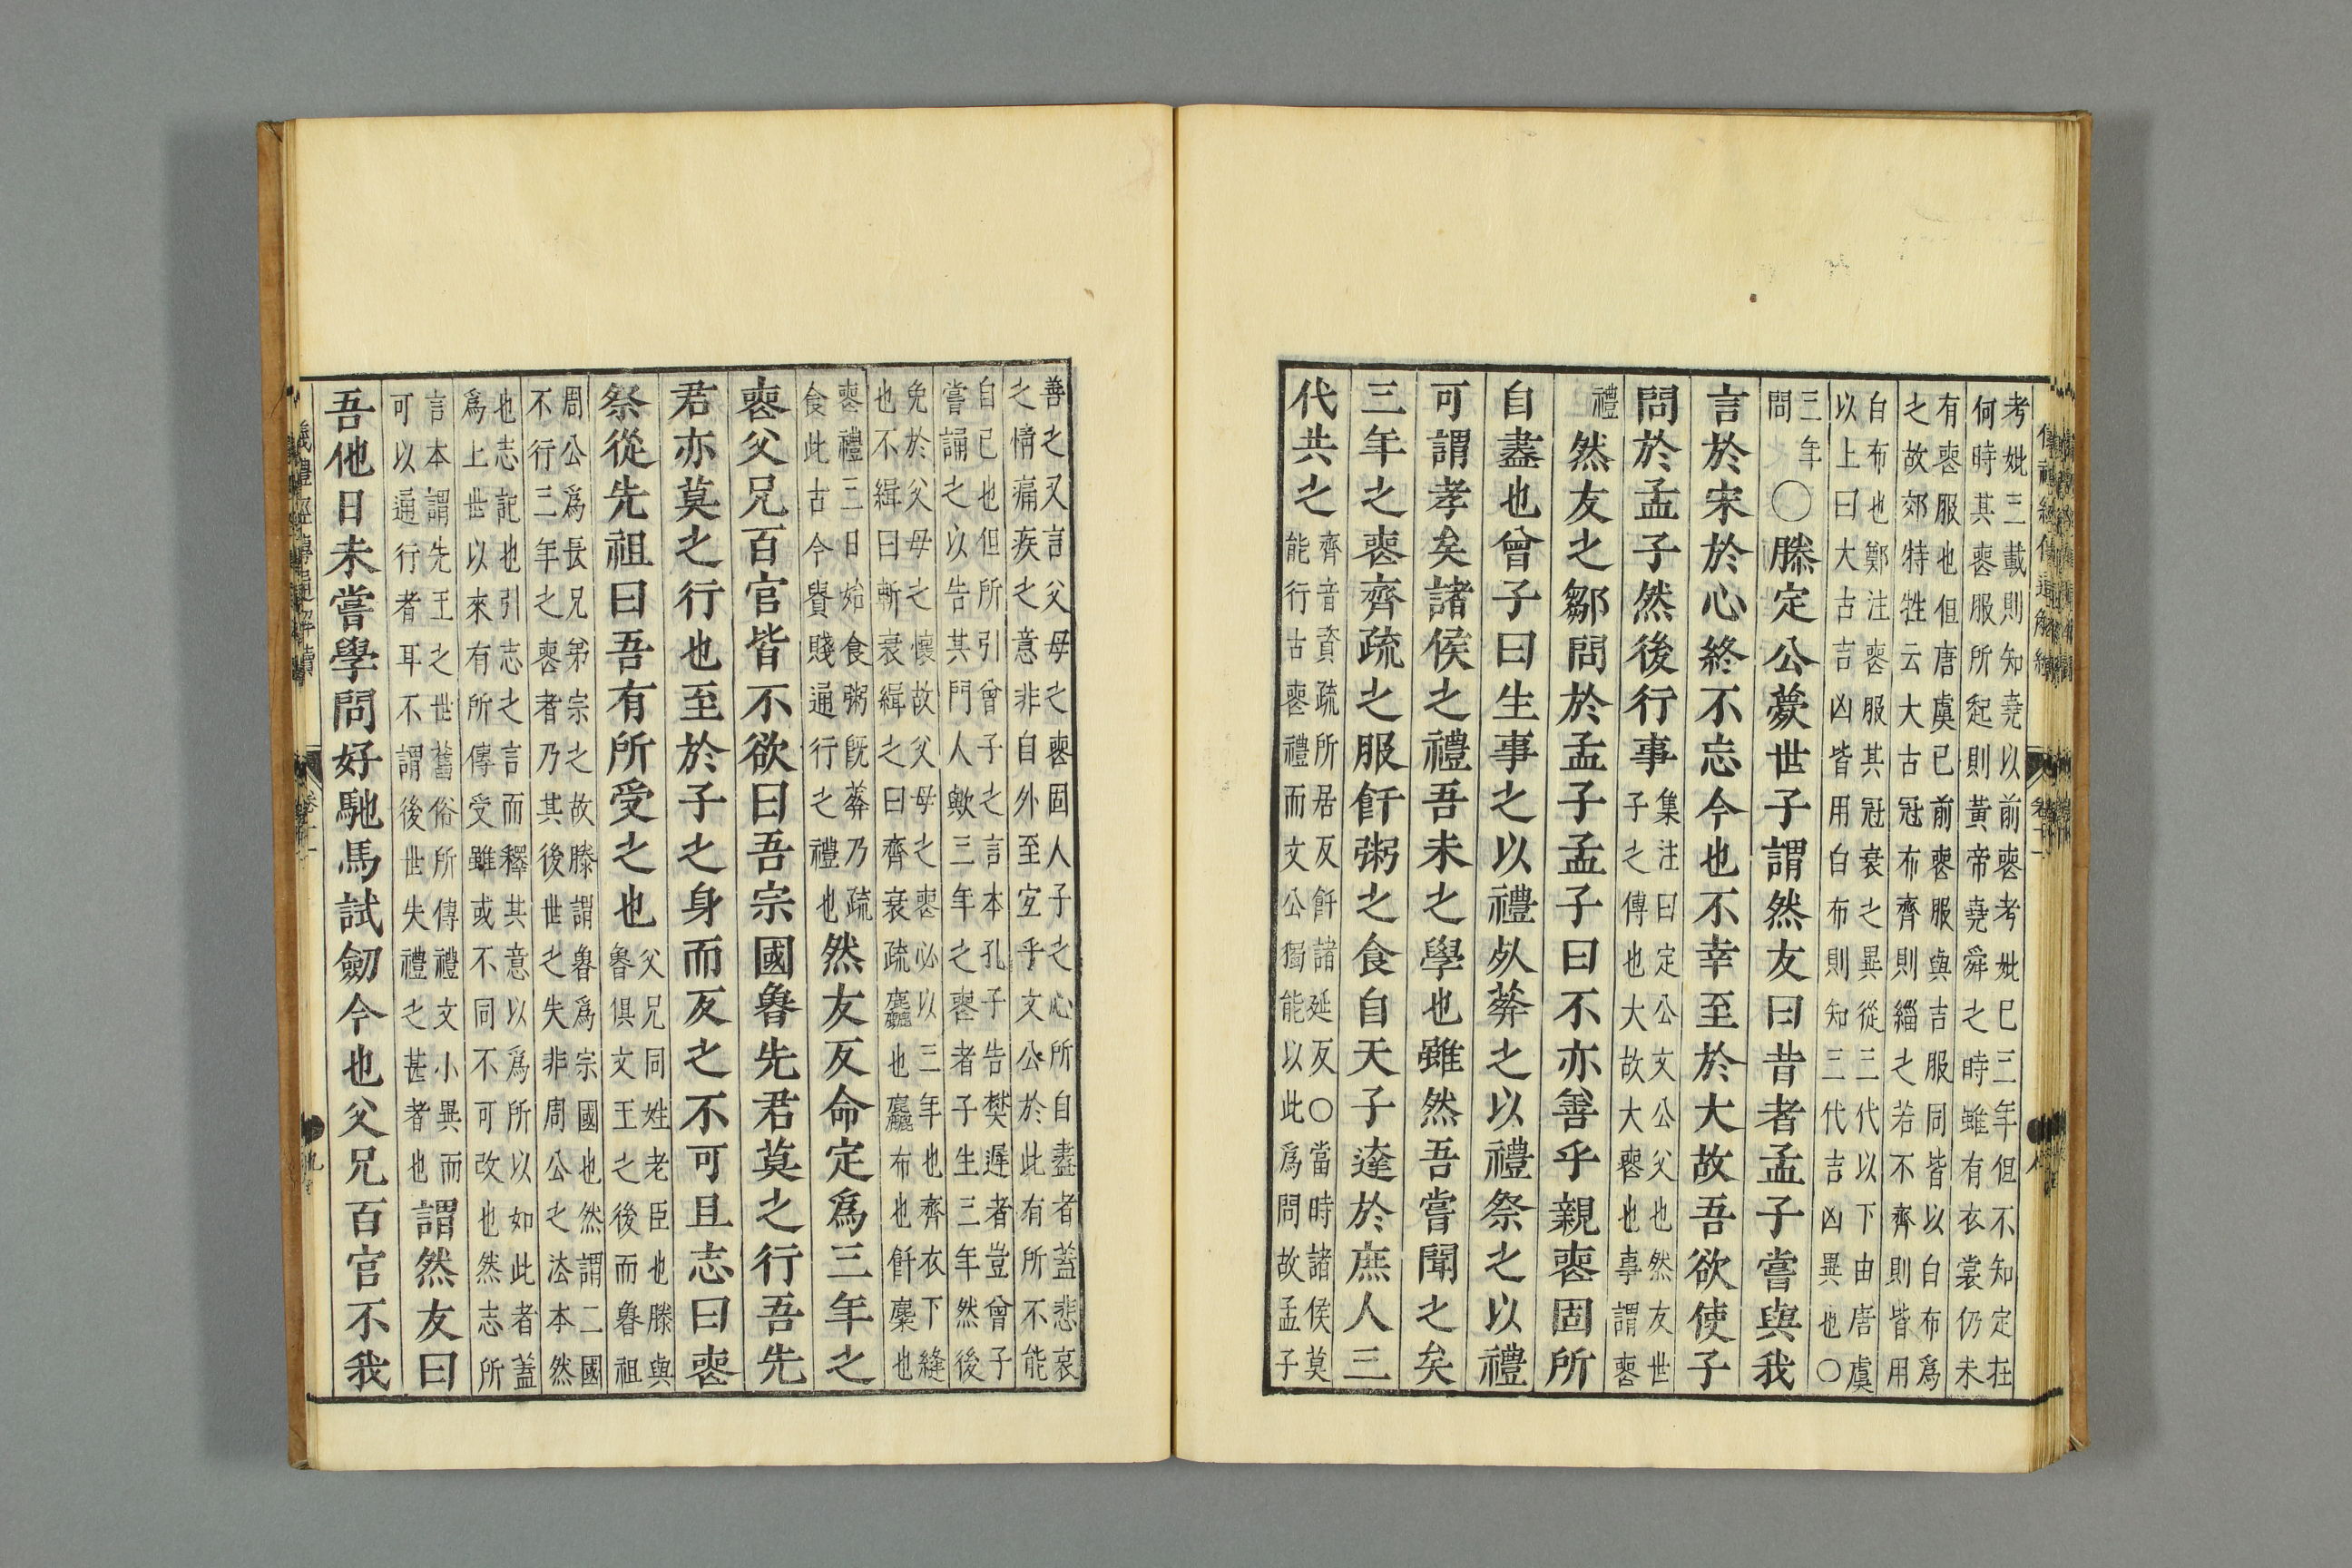 考妣三載則知堯以前喪考妣已三年但不知定在
何時其喪服所起則黃帝堯舜之時雖有衣裳仍未
有喪服也但唐虞已前喪服與吉服同皆以白布爲
之故郊特牲云大古冠布齊則緇之若不齊則皆用
白布也鄭注喪服其冠衰之異從三代以下由唐虞
以上曰大古吉凶皆用白布則知三代吉凶異也〇
三年問〇滕定公薨世子謂然友曰昔者孟子嘗與我
言於宋於心終不忘今也不幸至於大故吾欲使子
問於孟子然後行事集注曰定公文公父也然友世
子之傅也大故大喪也事謂喪
禮然友之鄒問於孟子孟子曰不亦善乎親喪固所
自盡也曾子曰生事之以禮死葬之以禮祭之以禮
可謂孝矣諸侯之禮吾未之學也雖然吾嘗聞之矣
三年之喪齊疏之服飦粥之食自天子達於庶人三
代共之齊音資疏所居反飦諸延反〇當時諸侯莫
能行古喪禮而文公獨能以此爲問故孟子
善之又言父母之喪固人子之心所自盡者蓋悲哀
之情痛疾之意非自外至宜乎文公於此有所不能
自已也但所引曾子之言本孔子告樊遲者豈曾子
嘗誦之以告其門人歟三年之喪者子生三年然後
免於父母之懷故父母之喪必以三年也齊衣下縫
也不緝曰斬衰緝之曰齊衰疏麤也麤布也飦糜也
喪禮三日始食粥旣葬乃疏
食此古今貴賤通行之禮也然友反命定爲三年之
喪父兄百官皆不欲曰吾宗國魯先君莫之行吾先
君亦莫之行也至於子之身而反之不可且志曰喪
祭從先祖曰吾有所受之也父兄同姓老臣也滕與
魯俱文王之後而魯祖
周公爲長兄弟宗之故滕謂魯爲宗國也然謂二國
不行三年之喪者乃其後世之失非周公之法本然
也志記也引志之言而釋其意以爲所以如此者蓋
爲上世以來有所傳受雖或不同不可改也然志所
言本謂先王之世舊俗所傳禮文小異而
可以通行者耳不謂後世失禮之甚者也謂然友曰
吾他日未嘗學問好馳馬試劒今也父兄百官不我
儀禮經傳通解續